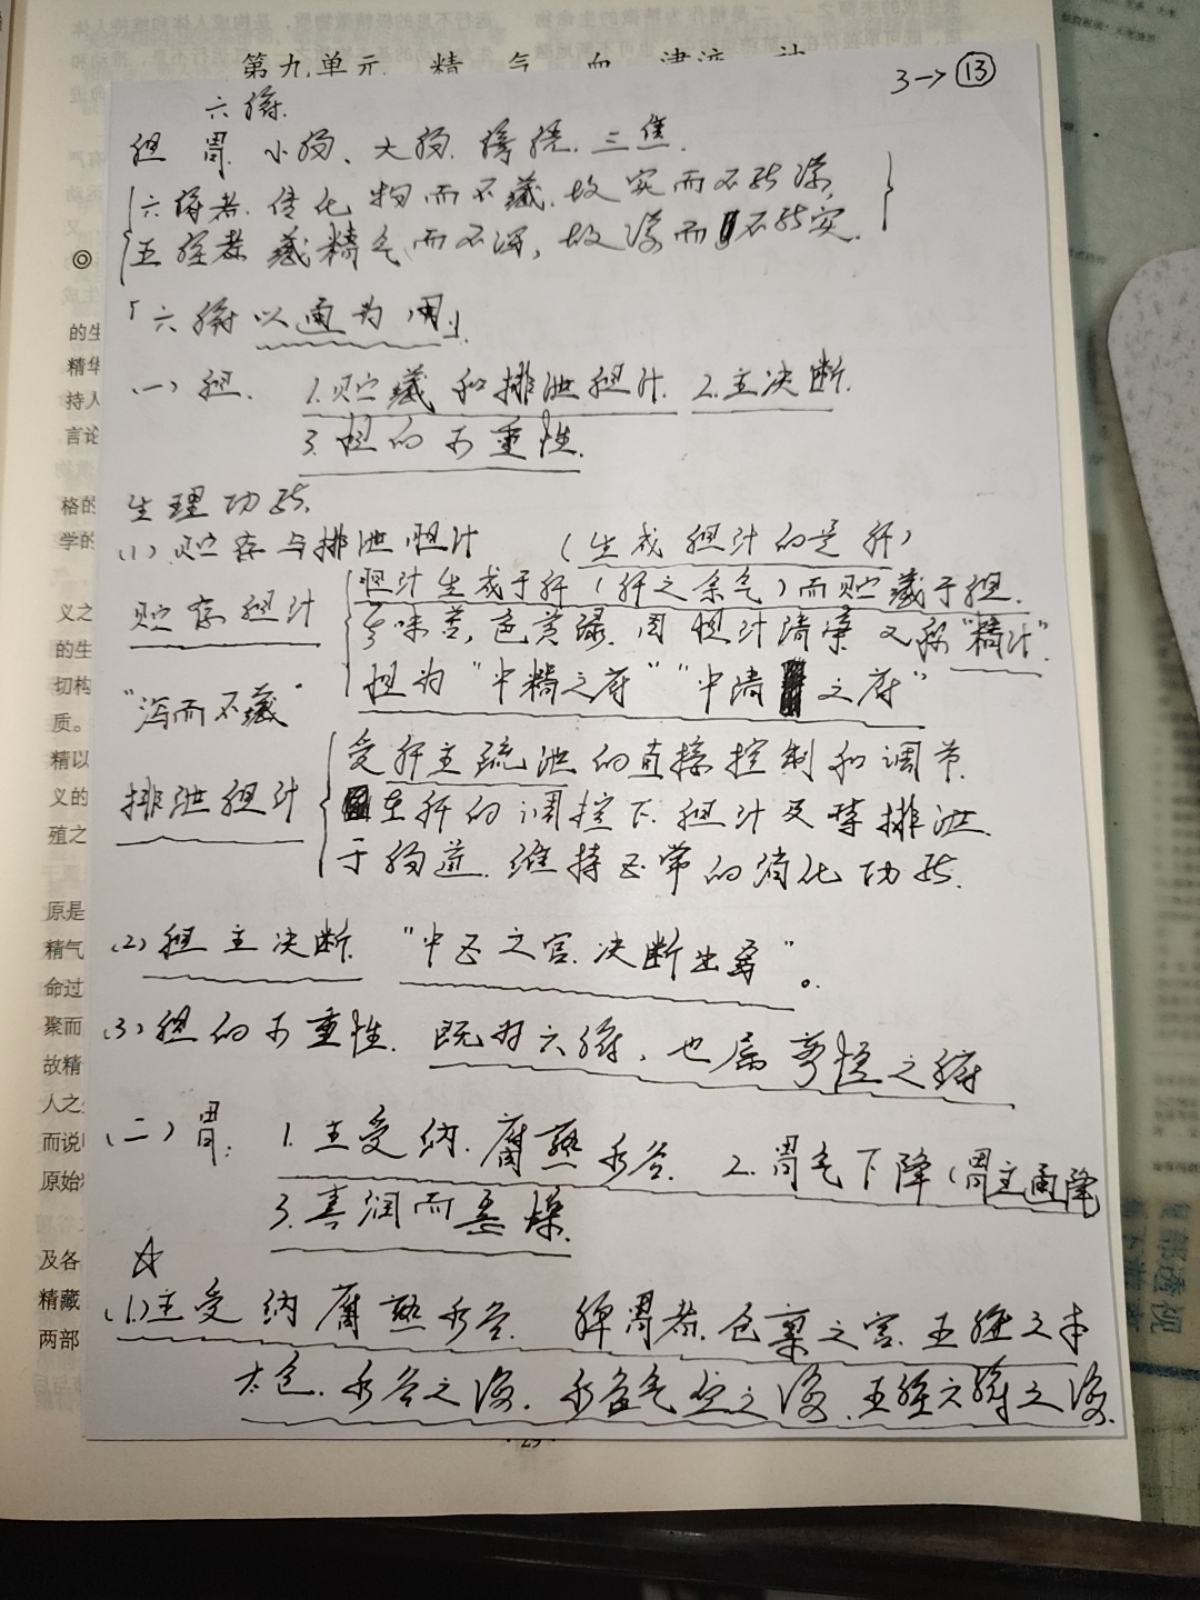 第九单元 精 气 血 津液
3→⑬
六腑.
胆 胃. 小肠、大肠. 膀胱. 三焦.
六腑者. 传化物而不藏. 故实而不能满,
五脏者 藏精气而不泻, 故满而不能实.
「六腑以通为用」.
(一) 胆. 1.贮藏和排泄胆汁. 2.主决断.
3.胆的不重性.
生理功能.
(1) 贮存与排泄胆汁 (生成胆汁的是肝)
贮存胆汁
胆汁生成于肝(肝之余气)而贮藏于胆.
味苦, 色黄绿. 因胆汁清 又称"精汁".
胆为"中精之府" "中清之府"
"泻而不藏"
排泄胆汁
受肝主疏泄的直接控制和调节.
在肝的调控下. 胆汁及时排泄
于肠道. 维持正常的消化功能.
(2) 胆主决断. "中正之官. 决断出焉"。
(3) 胆的不重性. 既为六腑, 也属奇恒之腑
(二) 胃: 1.主受纳. 腐熟水谷. 2.胃气下降(胃主通降
3.喜润而恶燥.
☆
(1)主受纳腐熟水谷. 脾胃者. 仓廪之官. 五脏之本
太仓. 水谷之海. 水谷气血之海. 五脏六腑之海.
◎
的生
精华
持人
言论
格的
学的
义之
的生
切构
质。
精以
义的
殖之
原是
精气
命过
聚而
故精
人之
而说
原始
及各
精藏
两部